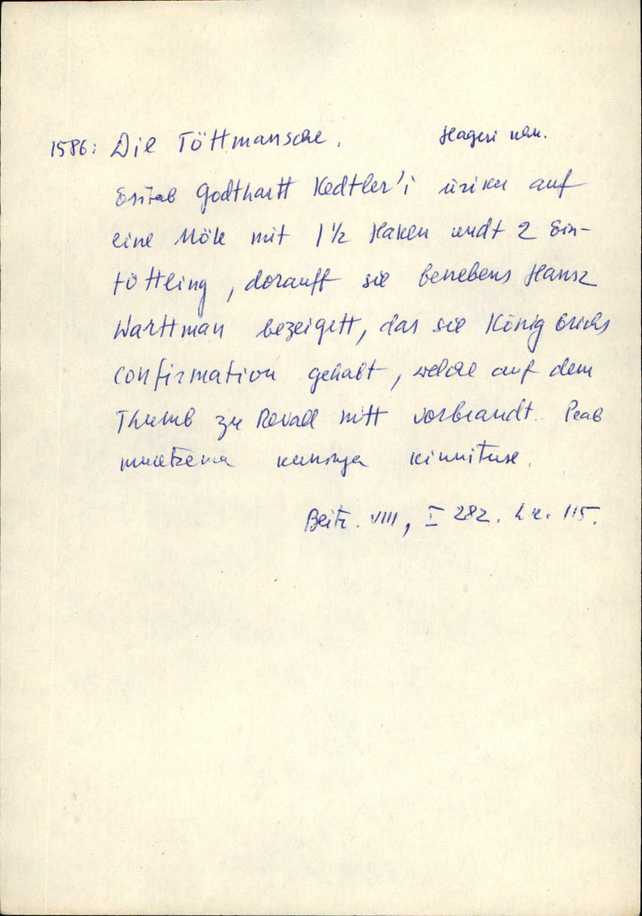 1586: Die Töttmansche. Hageri khk.
Esitab Godthartt Kedtler'i üriku auf
eine Möle mit 1½ Haken undt 2 Ein-
töttling, dorauff sie benebens Hansz
Warttman bezeigett, das sie König Erichs
Confirmation gehabt, welche auf dem
Thumb zu Revall mitt vorbrandt. Peab
muretzema kuninga kinnituse.
Beitr. VIII, I 282. Lk. 115.